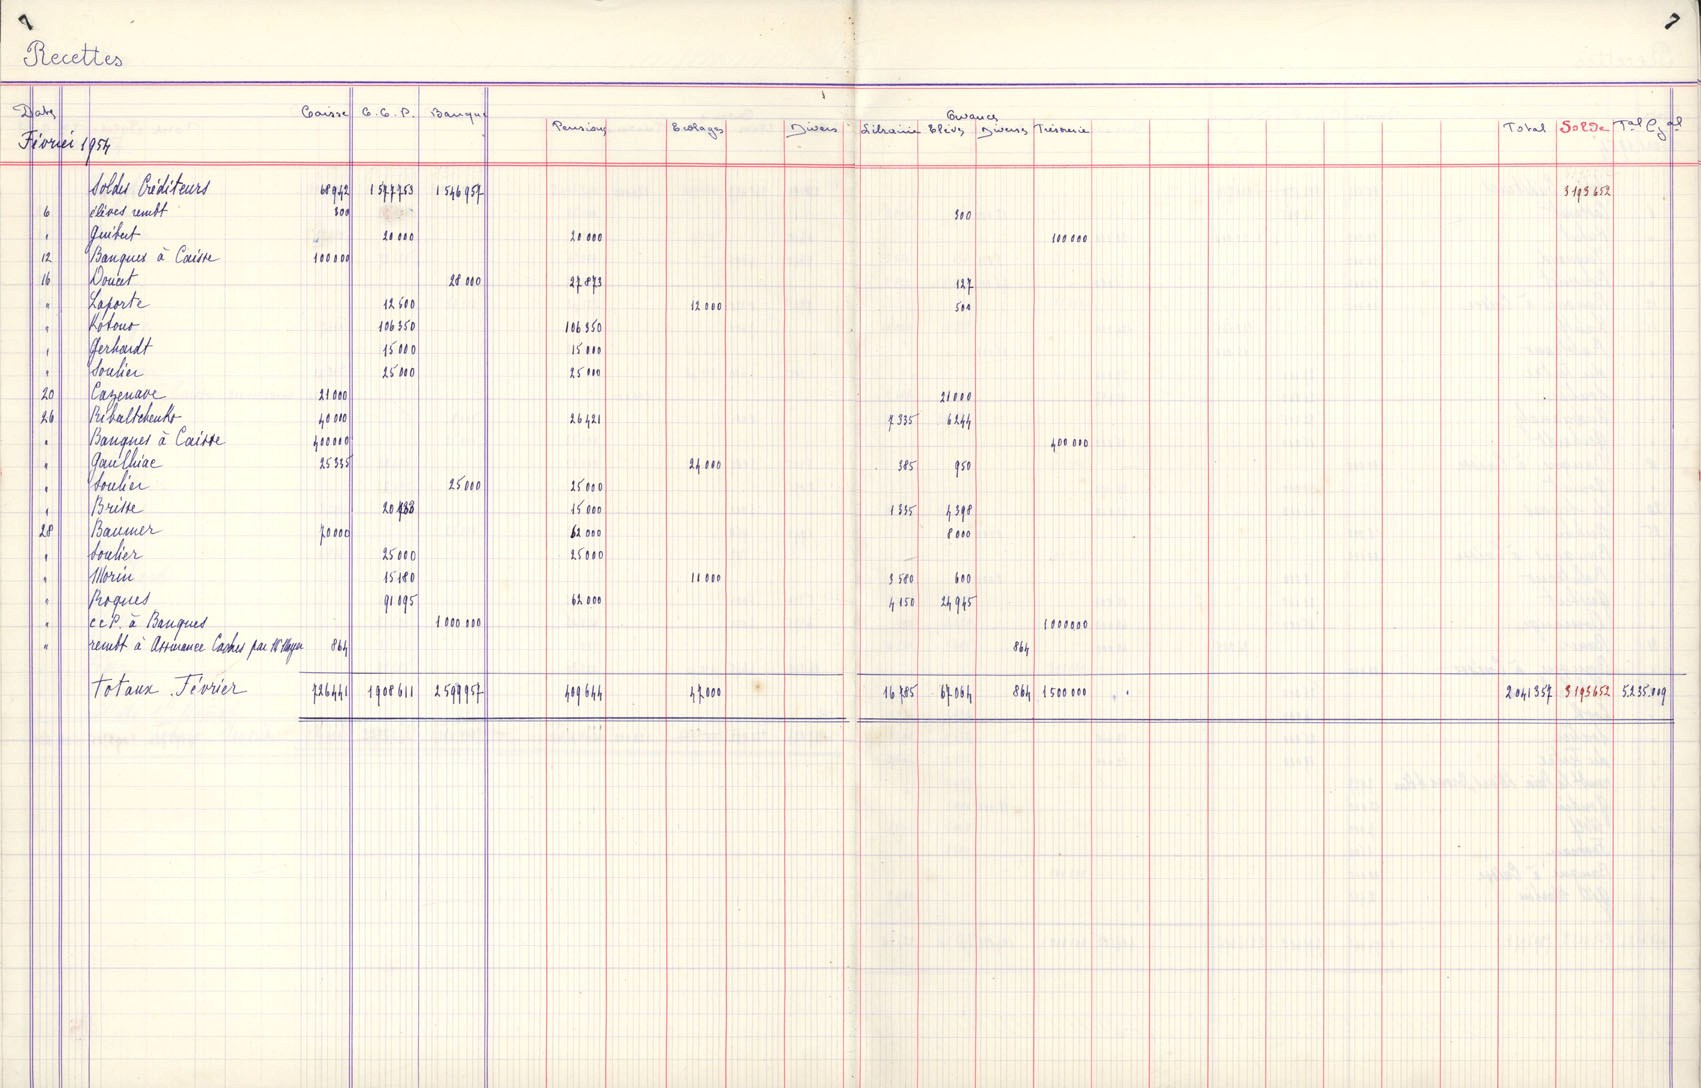 7 7
Recettes
Dates Caisse C.C.P. Banque Pensions Ecolages Divers Librairie Elèves Avances Divers Trésorerie Total Solde Tal Gal
Février 1954
Soldes Créditeurs 68942 1577753 1546957 3193652
6 élèves rembt 300 300
" Guibert 20000 20000 100000
12 Banques à Caisse 100000
16 Doucet 28000 27873 127
" Laporte 12500 12000 500
" Kotouo 106350 106350
" Gerhardt 15000 15000
" Soulier 25000 25000
20 Cazenave 21000 21000
26 Ribaltchenko 40000 26421 7335 6244
" Banques à Caisse 400000 400000
" Gaulhiac 25335 24000 385 950
" Soulier 25000 25000
" Brisse 20733 15000 1335 4398
28 Baumer 70000 62000 8000
" Soulier 25000 25000
" Morin 15180 11000 3580 600
" Roques 91095 62000 4150 24945
" ccP. à Banques 1000000 1000000
" rembt à Assurance par 864 864
Totaux Février 726441 1908611 2599957 409644 47000 16785 67064 864 1500000 2041357 3193652 5235.009